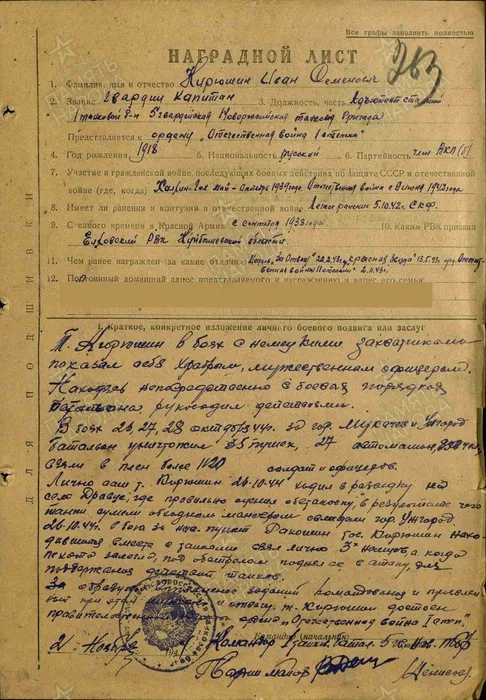 Все графы заполнять полностью
263
НАГРАДНОЙ ЛИСТ
1. Фамилия, имя и отчество Кирюшин Иван Семенович
2. Звание Гвардии Капитан 3. Должность, часть Адъютант старший
1 танковой б-н 5 гвардейской Новоросийской танковой бригады
Представляется к ордену „Отечественная война 1 степени"
4. Год рождения 1918 5. Национальность русский 6. Партийность член ВКП(б)
7. Участие в гражданской войне, последующих боевых действиях по защите СССР и отечественной
войне (где, когда) Халхин-Гол май - октябрь 1939 года Отечественная война с 1942 года
8. Имеет ли ранения и контузии в отечественной войне Легкое ранение 5.10.42г. СКФ.
9. С какого времени в Красной Армии с сентября 1938 года 10. Каким РВК призван
РВК Куйбышевской области
11. Чем ранее награжден (за какие отличия) Медаль „За Отвагу" „Красная Звезда" орд. Отечест-
венная война II степени
12. Постоянный домашний адрес представляемого к награждению и адрес его семьи
Краткое, конкретное изложение личного боевого подвига или заслуг
Т. Кирюшин в боях с немецкими захватчиками
показал себя храбрым, мужественным офицером.
Находясь непосредственно в боевых порядках
батальона руководил действиями.
В боях 26, 27, 28 октября 44г. за гор. Мукачево и Ужгород
батальон уничтожил 35 пушек, 27 автомашин,
взяли в плен более 1120 солдат и офицеров.
Лично сам т. Кирюшин 26.10.44 ходил в разведку на
село где правильно оценил обстановку, в результате чего
танки сумели обходным маневром овладели гор. Ужгород.
26.10.44г. в бою за нас. пункт Ракошин тов. Кирюшин нахо-
дившийся вместе с танками взял лично 3х немцев, а когда
пехота залегла, под обстрелом поднял ее в атаку, для
поддержания действий танков.
За образцовое выполнение заданий командования и проявлен-
ное при этом и отвагу т. Кирюшин достоен
правительственной орден „Отечественная война I степ."
Командир (начальник)
2 Ноября Командир
Гвардии майор
ДЛЯ ПОДШИВКИ